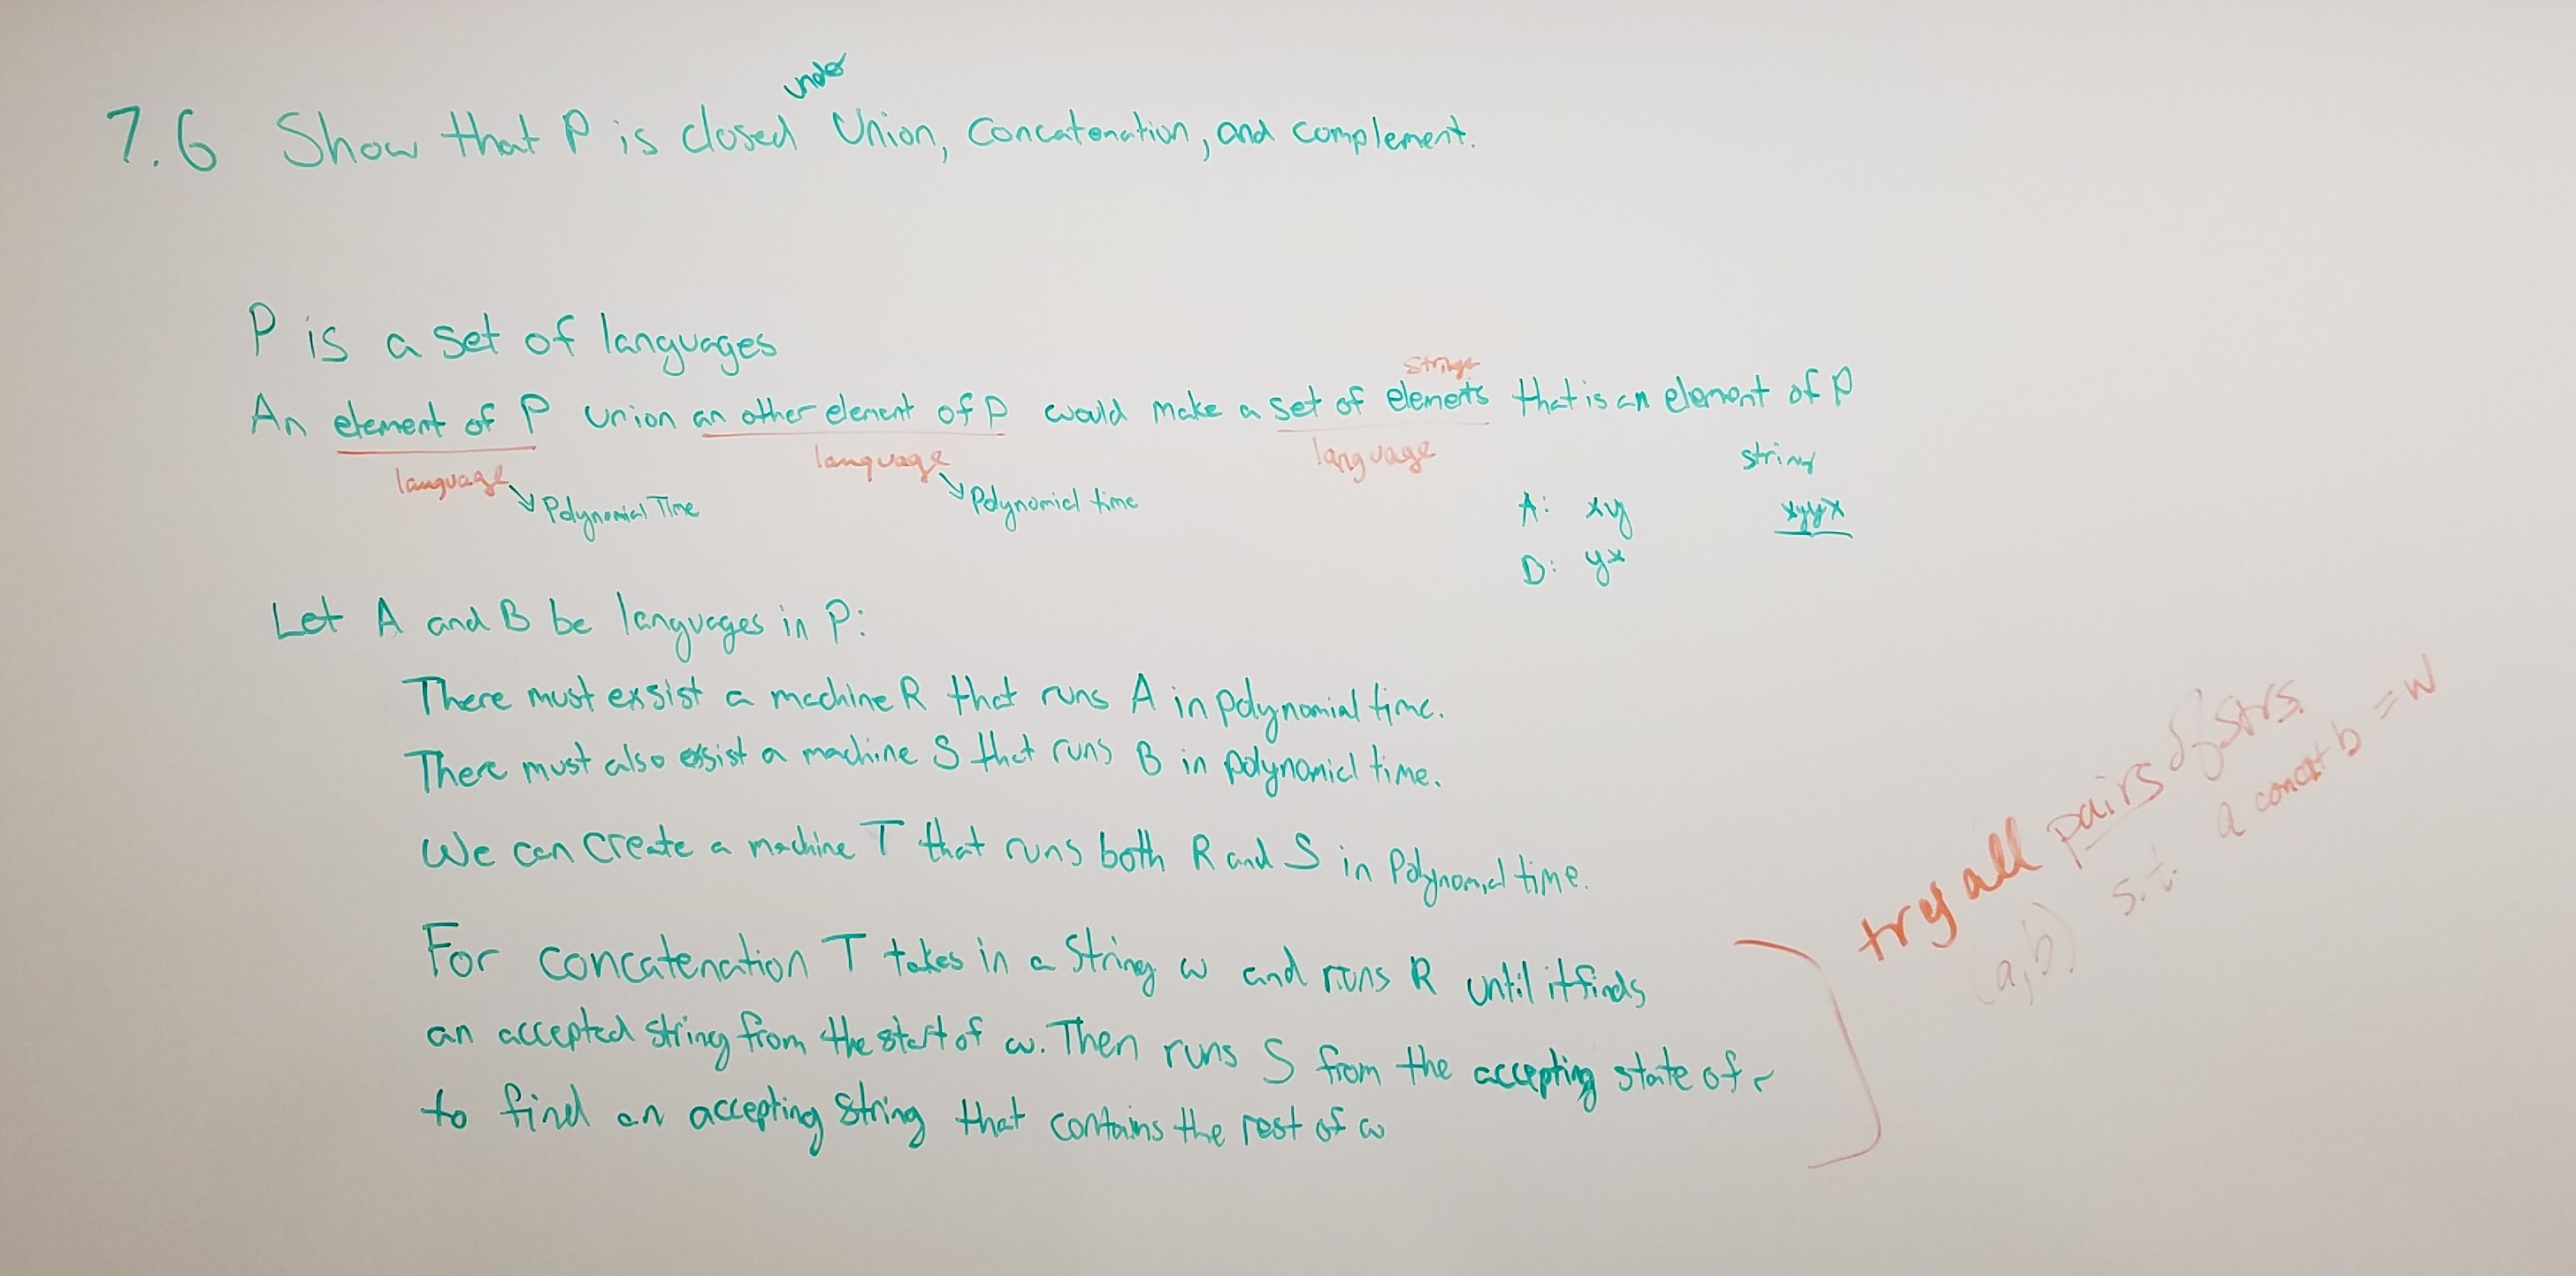 under
7.6 Show that P is closed Union, Concatenation, and complement.
P is a set of languages
strings
An element of P union an other element of P would make a set of elements that is an element of P
language
language
language
string
Polynomial Time
Polynomial time
A: xy
xyyx
D: yx
Let A and B be languages in P:
There must exsist a machine R that runs A in polynomial time.
There must also exsist a machine S that runs B in polynomial time.
We can create a machine T that runs both R and S in Polynomial time.
For concatenation T takes in a string w and runs R until it finds
an accepted string from the start of w. Then runs S from the accepting state of r
to find an accepting string that contains the rest of w
try all pairs of strs.
(a,b) s.t. a concat b = w